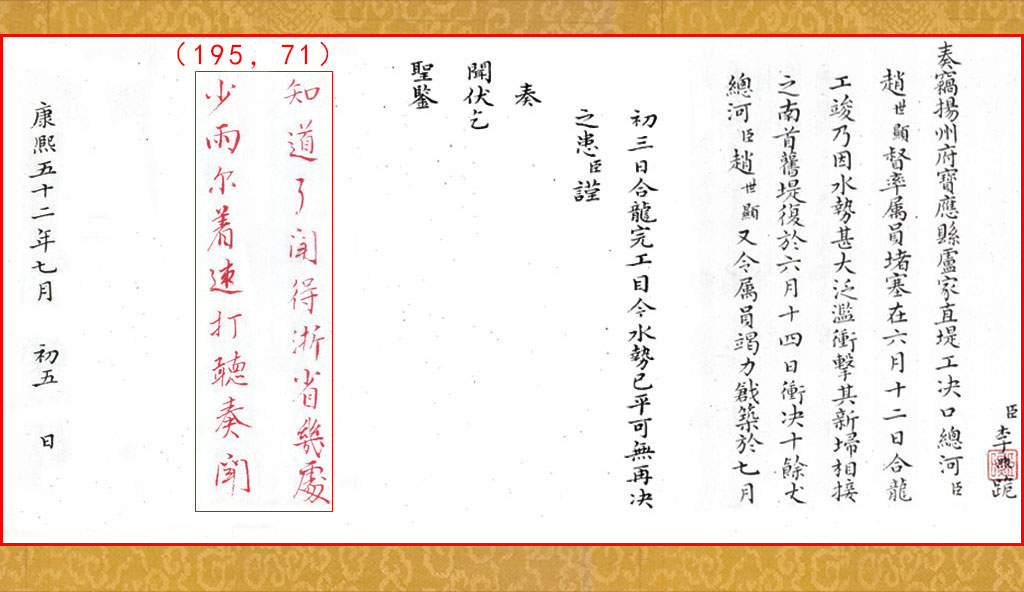 臣李煦跪
奏竊揚州府寶應縣盧家直堤工决口總河臣
趙世顯督率属員堵塞在六月十二日合龍
工竣乃因水勢甚大泛濫衝擊其新埽相接
之南首舊堤復於六月十四日衝决十餘丈
總河臣趙世顯又令属員竭力戧築於七月
初三日合龍完工目今水勢已平可無再决
之患臣謹
奏
聞伏乞
聖鑒
(195, 71)
知道了聞得浙省幾處
少雨尔着速打聽奏聞
康熙五十二年七月 初五 日